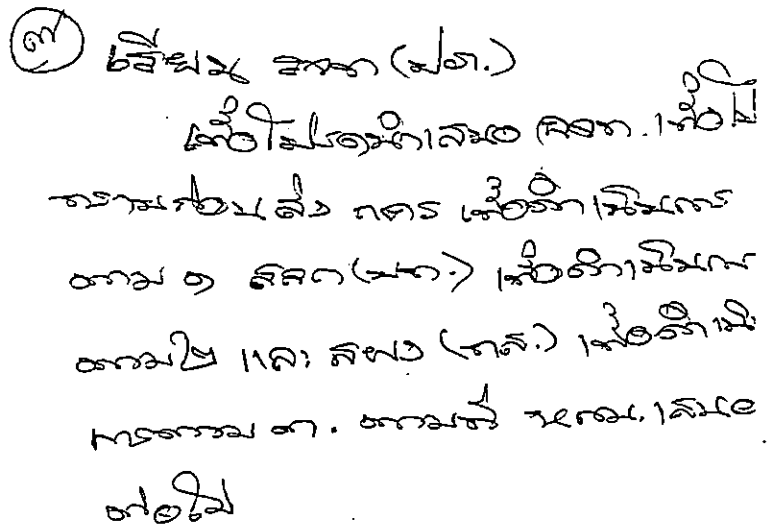 ๓ เรียน (ปธ.)
เพื่อโปรดนำเสนอ เพื่อโ
ทราบก่อนส่ง กคร เพื่อดำเนินการ
ตาม ๑ สลค (นก.) เพื่อดำเนินกา
ตาม ๒ และ สผง (กส.) เพื่อดำเนิ
การตาม ๓. ตามที่ เสนอ
ต่อไป